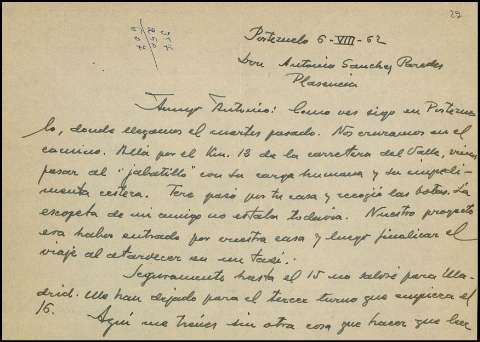 29
Portezuelo 6-VIII-62
Don Antonio Sanchez Paredes
Plasencia
Amigo Antonio: Como ves sigo en Portezue-
lo, donde llegamos el martes pasado. Nos cruzamos en el
camino. Allá por el Km. 13 de la carretera del Valle, vimos
pasar al "jabatillo" con su carga humana y su impedi-
menta cestera. Tere pasó por tu casa y recogió las botas. La
escopeta de mi amigo no estaba todavía. Nuestro proyecto
era haber entrado por vuestra casa y luego finalizar el
viaje al atardecer en un taxi.
Seguramente hasta el 15 no saldré para Ma-
drid. Me han dejado para el tercer turno que empieza el
16.
Aquí me tienes sin otra cosa que hacer que leer